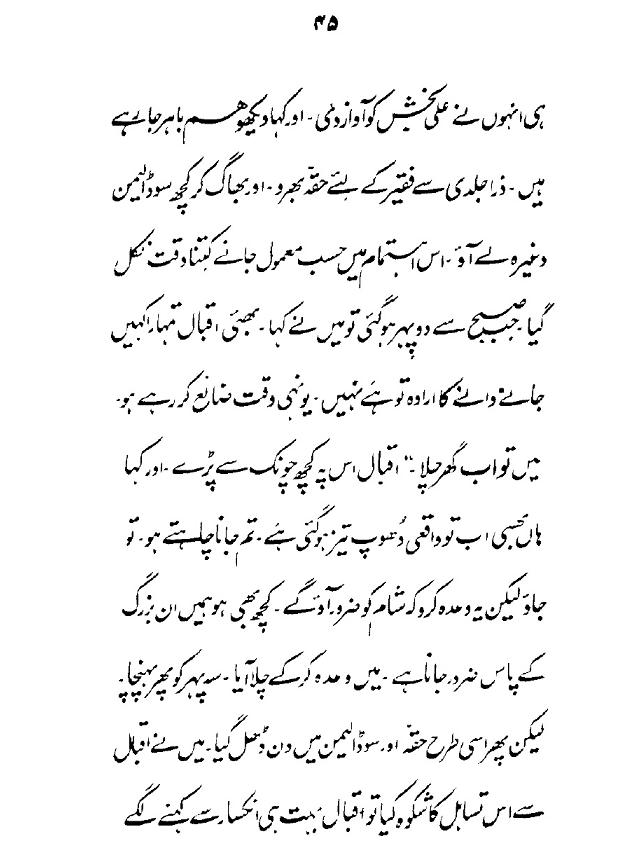 ۴۵
ہی انہوں نے علی بخش کو آواز دی۔ اور کہا دیکھو ہم باہر جا رہے
ہیں۔ ذرا جلدی سے فقیر کے لئے حقہ بھرو۔ اور بھاگ کر کچھ سوڈا لیمن
وغیرہ لے آؤ۔ اس اہتمام میں حسب معمول جانے کتنا وقت نکل
گیا۔ جب صبح سے دوپہر ہو گئی تو میں نے کہا۔ بھئی اقبال تمہارا کہیں
جانے وانے کا ارادہ تو ہے نہیں۔ یونہی وقت ضائع کر رہے ہو۔
میں تو اب گھر چلا۔" اقبال اس پہ کچھ چونک سے پڑے۔ اور کہا
ہاں بھئی اب تو واقعی دُھوپ تیز ہو گئی ہے۔ تم جانا چاہتے ہو۔ تو
جاؤ لیکن یہ وعدہ کرو کہ شام کو ضرور آؤ گے۔ کچھ بھی ہو ہمیں ان بزرگ
کے پاس ضرور جانا ہے۔ میں وعدہ کر کے چلا آیا۔ سہ پہر کو پھر پہنچا۔
لیکن پھر اسی طرح حقہ اور سوڈا لیمن میں دن ڈھل گیا۔ میں نے اقبال
سے اس تساہل کا شکوہ کیا تو اقبال بہت ہی انکسار سے کہنے لگے